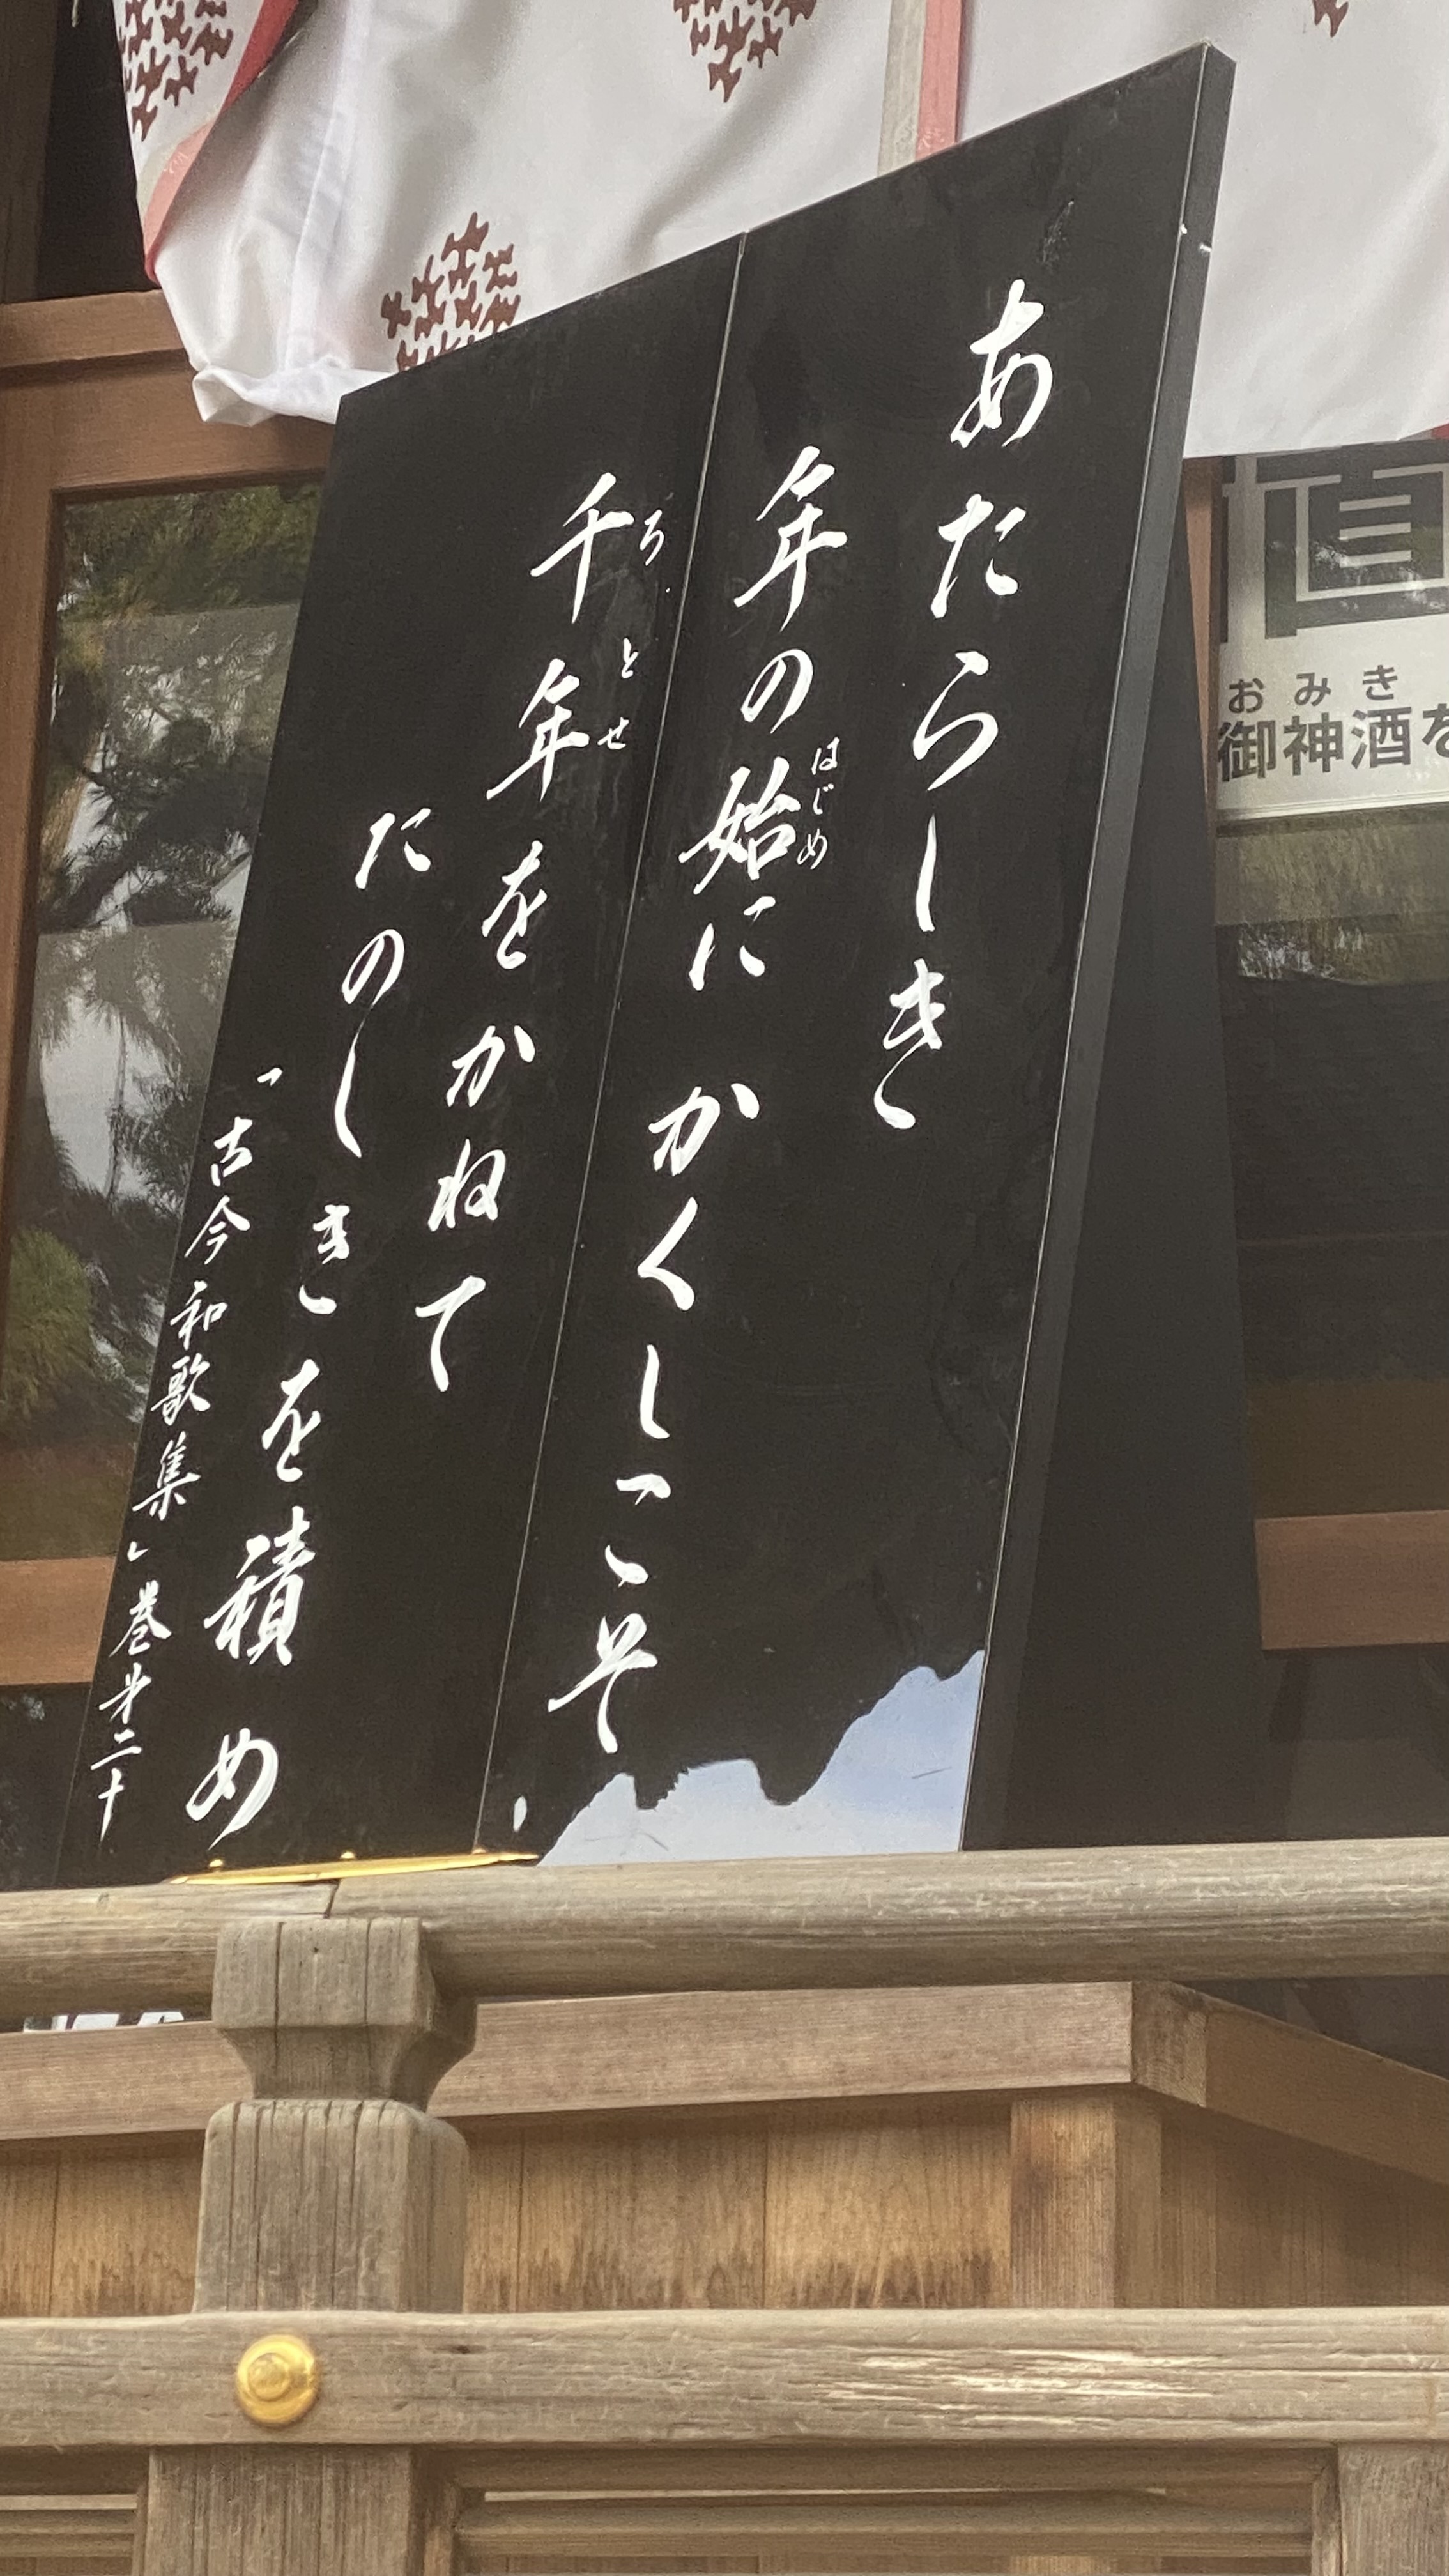 あたらしき
年の始に かくしこそ
はじめ
千年をかねて
ちとせ
たのしきを積め
「古今和歌集」巻第二十
直
おみき
御神酒を